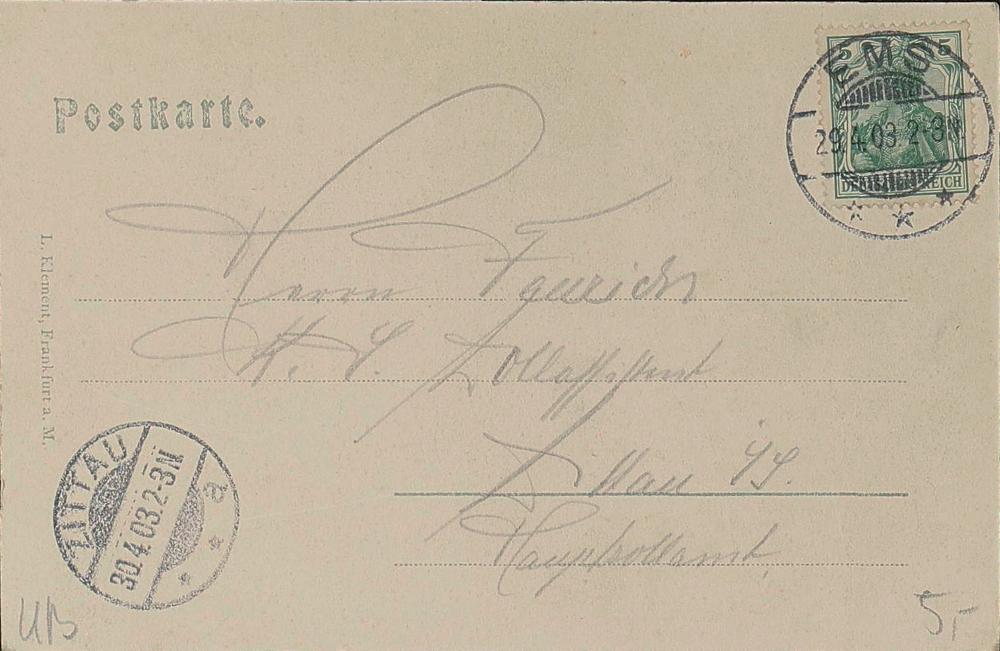 Postkarte.
5 5
DEUTSCHES REICH
EMS
29.4.03 2-3N
L. Klement, Frankfurt a. M.
Herrn
K. S. Zollassistent
Zittau i/S.
Hauptzollamt.
ZITTAU
30.4.03.2-3N
a
5,-